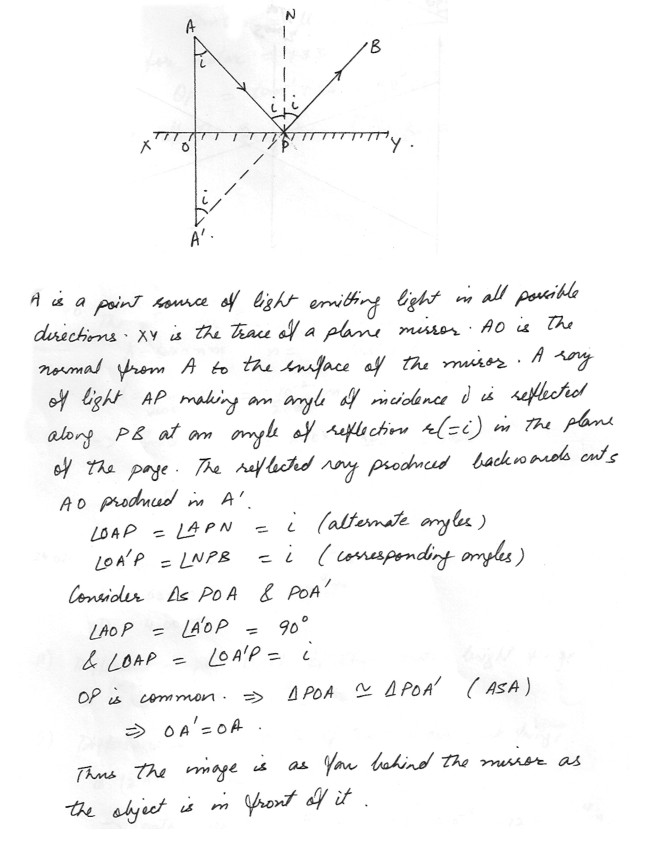 N
A
B
i
i i
X O P Y .
i
A' .
A is a point source of light emitting light in all possible
directions . XY is the trace of a plane mirror . AO is the
normal from A to the surface of the mirror . A ray
of light AP making an angle of incidence i is reflected
along PB at an angle of reflection r(=i) in the plane
of the page . The reflected ray produced backwards cuts
AO produced in A'.
∠OAP = ∠APN = i (alternate angles)
∠OA'P = ∠NPB = i (corresponding angles)
Consider Δs POA & POA'
∠AOP = ∠A'OP = 90°
& ∠OAP = ∠OA'P = i
OP is common . ⇒ ΔPOA ≃ ΔPOA' (ASA)
⇒ OA' = OA .
Thus the image is as far behind the mirror as
the object is in front of it .